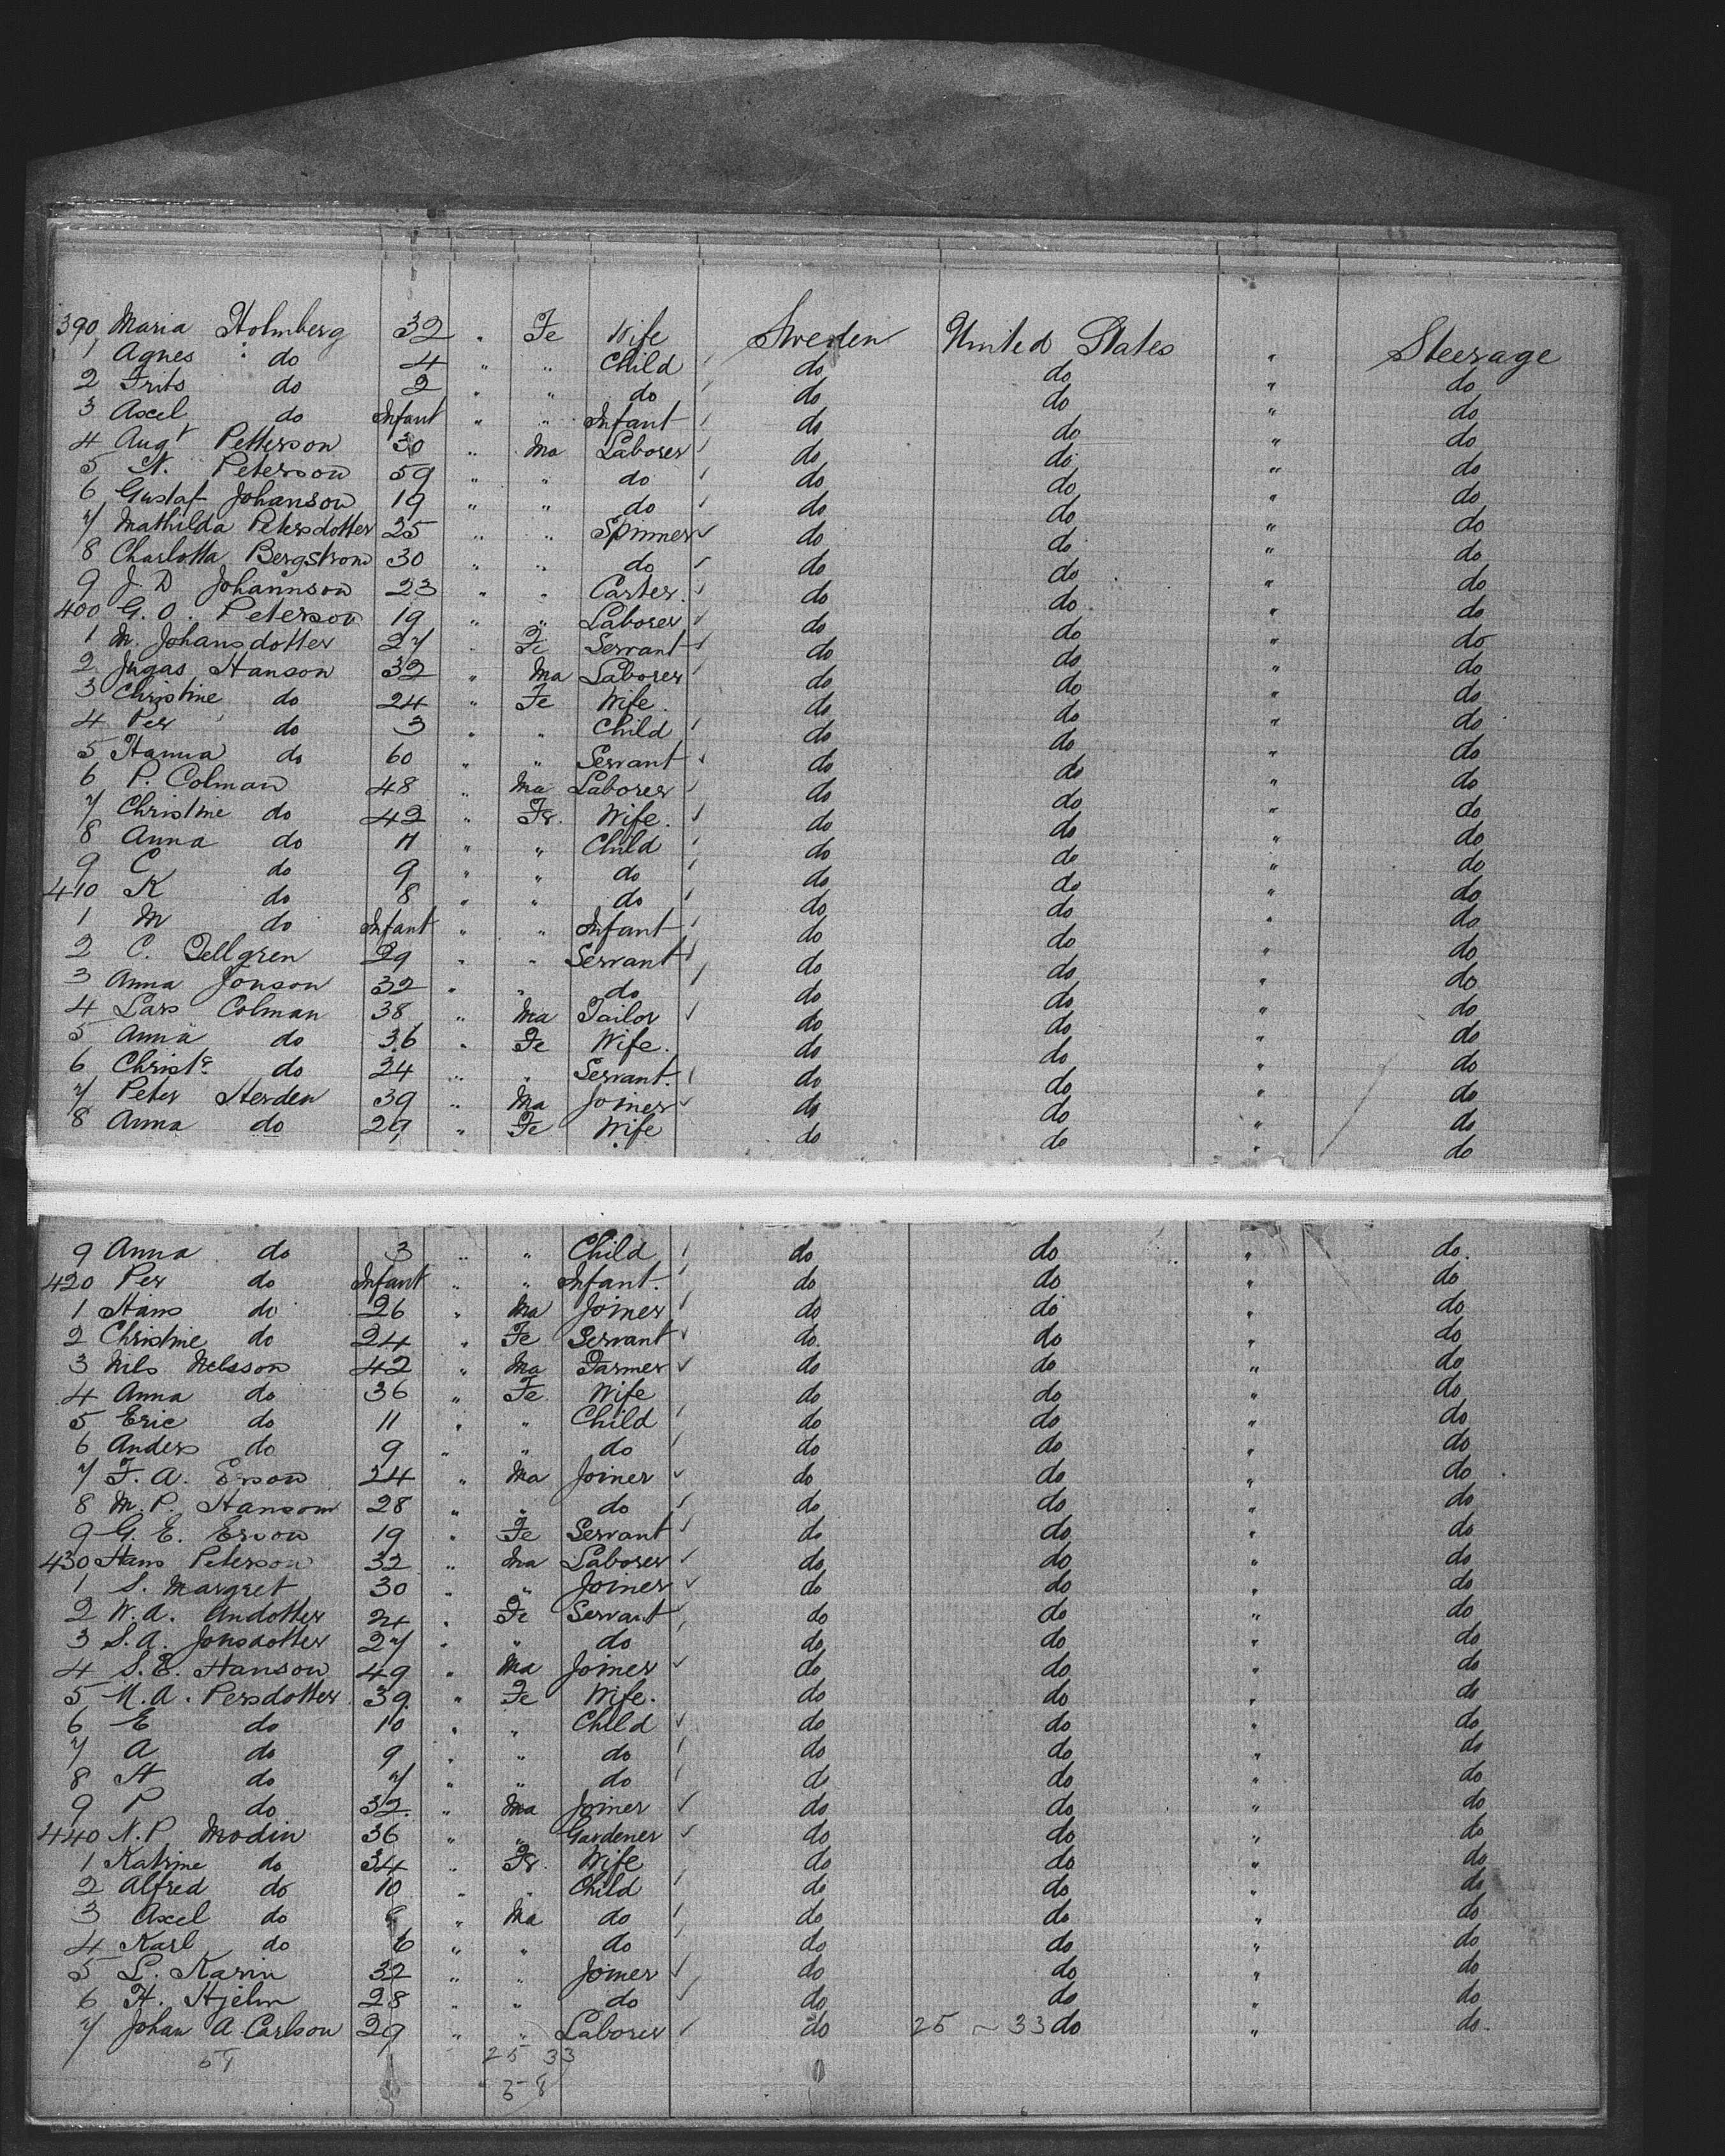 390 Maria Holmberg 32 " Fe Wife Sweden United States " Steerage
1 Agnes do 4 " " Child do do " do
2 Frits do 2 " " do do do " do
3 Axel do Infant " " Infant do do " do
4 Augt Petterson 30 " Ma Laborer do do " do
5 N. Peterson 59 " " do do do " do
6 Gustaf Johanson 19 " " do do do " do
7 Mathilda Petersdotter 25 " " Spinner do do " do
8 Charlotta Bergstrom 30 " " do do do " do
9 J. D Johannson 23 " " Carter. do do " do
400 G. O. Peterson 19 " " Laborer do do " do
1 M. Johansdotter 27 " Fe Servant do do " do
2 Jugas Hanson 32 " Ma Laborer do do " do
3 Christine do 24 " Fe Wife. do do " do
4 Per do 3 " " Child do do " do
5 Hanna do 60 " " Servant do do " do
6 P. Colman 48 " Ma Laborer do do " do
7 Christine do 42 " Fe. Wife. do do " do
8 Anna do 11 " " Child do do " do
9 C do 9 " " do do do " do
410 K do 8 " " do do do " do
1 M do Infant " " Infant do do " do
2 C. Tellgren 29 " " Servant do do " do
3 Anna Jonson 32 " " do do do " do
4 Lars Colman 38 " Ma Tailor do do " do
5 Anna do 36 " Fe Wife. do do " do
6 Christe. do 24 " " Servant. do do " do
7 Peter Herden 39 " Ma Joiner do do " do
8 Anna do 27 " Fe Wife do do " do
9 Anna do 3 " " Child do do " do.
420 Per do Infant " " Infant. do do " do
1 Hans do 26 " Ma Joiner do do " do
2 Christine do 24 " Fe Servant do do " do
3 Nils Nelsson 42 " Ma Farmer do do " do
4 Anna do 36 " Fe. Wife do do " do
5 Eric do 11 " " Child do do " do
6 Anders do 9 " " do do do " do
7 F. A. Erson 24 " Ma Joiner do do " do
8 M. P. Hanson 28 " " do do do " do
9 G. E. Erson 19 " Fe Servant do do " do
430 Hans Peterson 32 " Ma Laborer do do " do
1 S. Margret 30 " " Joiner do do " do
2 W. A. Andotter 24 " Fe Servant do do " do
3 S. A. Jonsdotter 27 " " do do do " do
4 S. E. Hanson 49 " Ma Joiner do do " do
5 M. A. Persdotter 39 " Fe Wife. do do " do
6 E do 10 " " Child do do " do
7 A do 9 " " do do do " do
8 H do 7 " " do do do " do
9 P do 32. " Ma Joiner do do " do
440 N. P Modin 36 " " Gardener do do " do
1 Katrine do 34 " Fe. Wife do do " do
2 Alfred do 10 " " Child do do " do
3 Axel do " Ma do do do " do
4 Karl do 6 " " do do do " do
5 L. Karin 32 " " Joiner do do " do
6 H. Hjelm 28 " " do do do " do
7 Johan A. Carlson 29 " " Laborer do 25 ~ 33 do " do
25 33
58